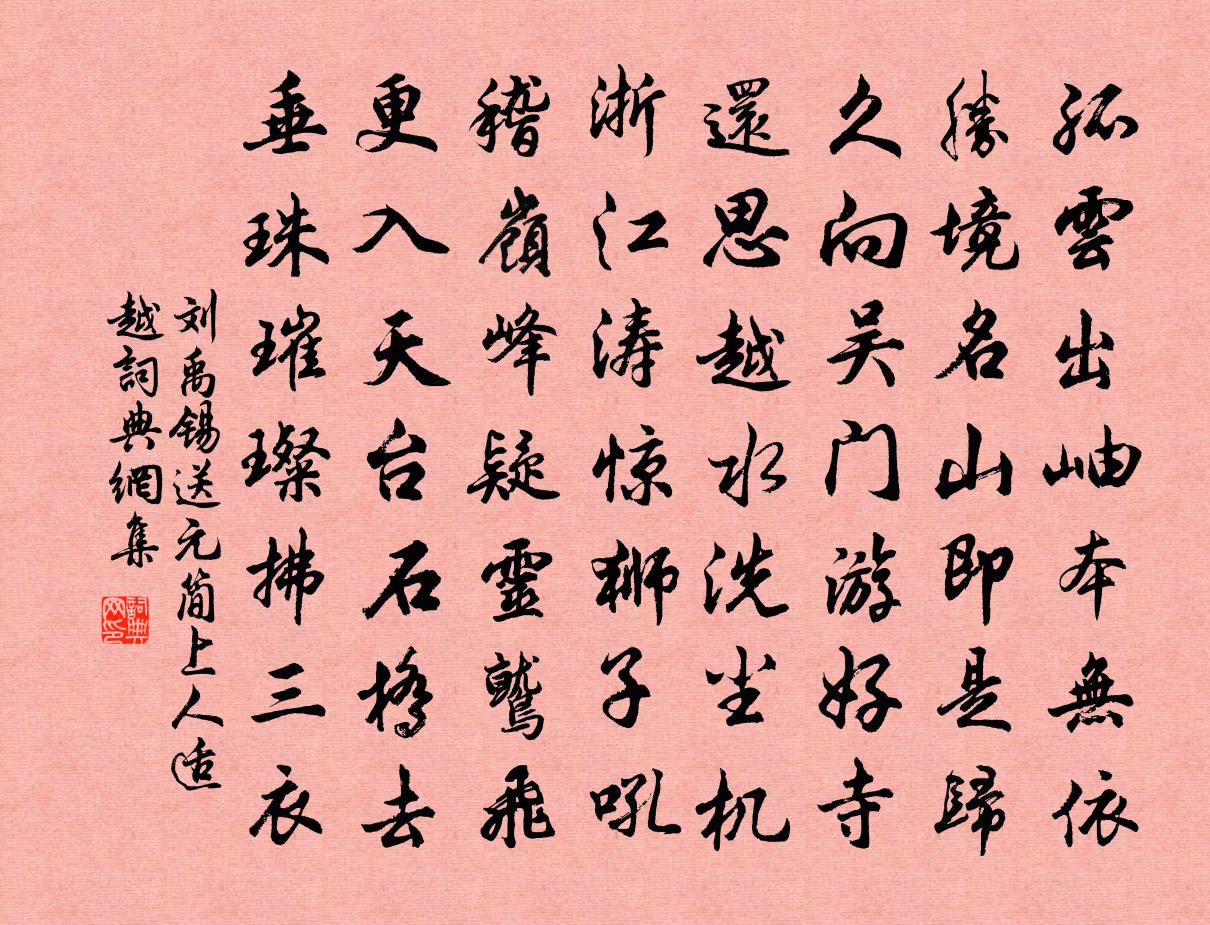 孤雲出岫本無依
勝境名山即是歸
久向吴门游好寺
還思越水洗尘机
浙江涛惊狮子吼
稽嶺峰疑靈鷲飛
更入天台石橋去
垂珠璀璨拂三衣
刘禹锡送元简上人适
越詞典網集
詞典网印